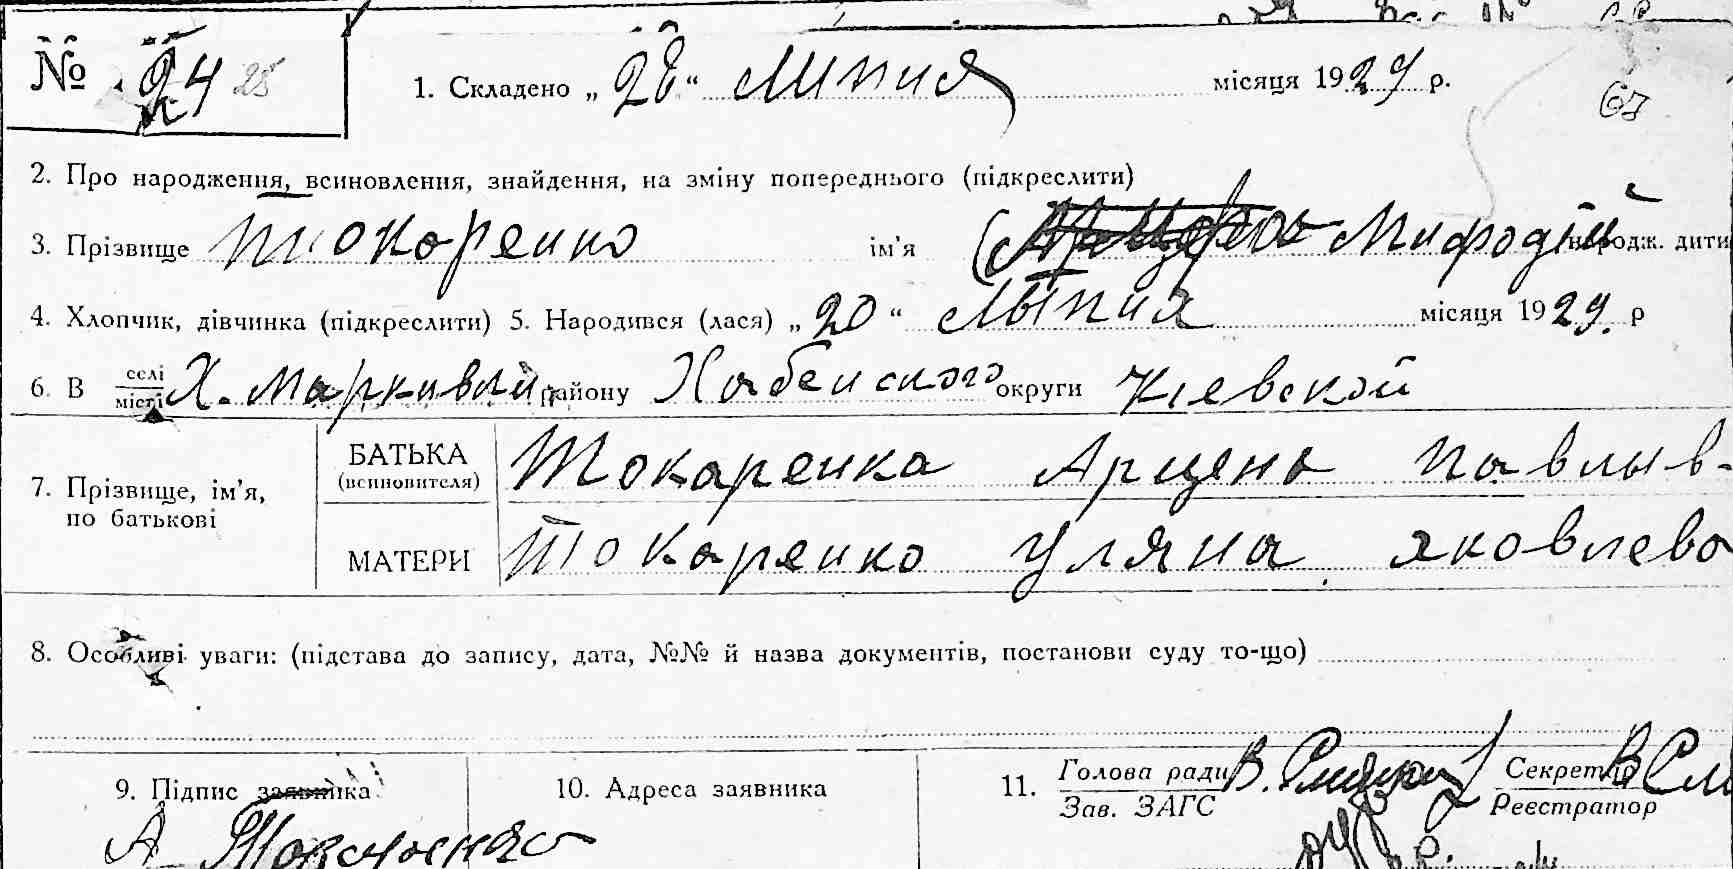 № 24 25 1. Складено „28“ липня місяця 1929 р.
67
2. Про народження, всиновлення, знайдення, на зміну попереднього (підкреслити)
3. Прізвище Токоренко ім’я Мифодій народж. дити
4. Хлопчик, дівчинка (підкреслити) 5. Народився (лася) „20“ липня місяця 1929. р
6. В селі місті Х. Маркивка району Хабенского округи Кіевской
7. Прізвище, ім’я, по батькові
БАТЬКА (всиновителя) Токаренка Арцена Павлыв-
МАТЕРИ Токаренко Уляна Яковлева
8. Особливі уваги: (підстава до запису, дата, №№ й назва документів, постанови суду то-що)
9. Підпис заявника 10. Адреса заявника 11. Голова ради Зав. ЗАГС Секретар Реєстратор
А